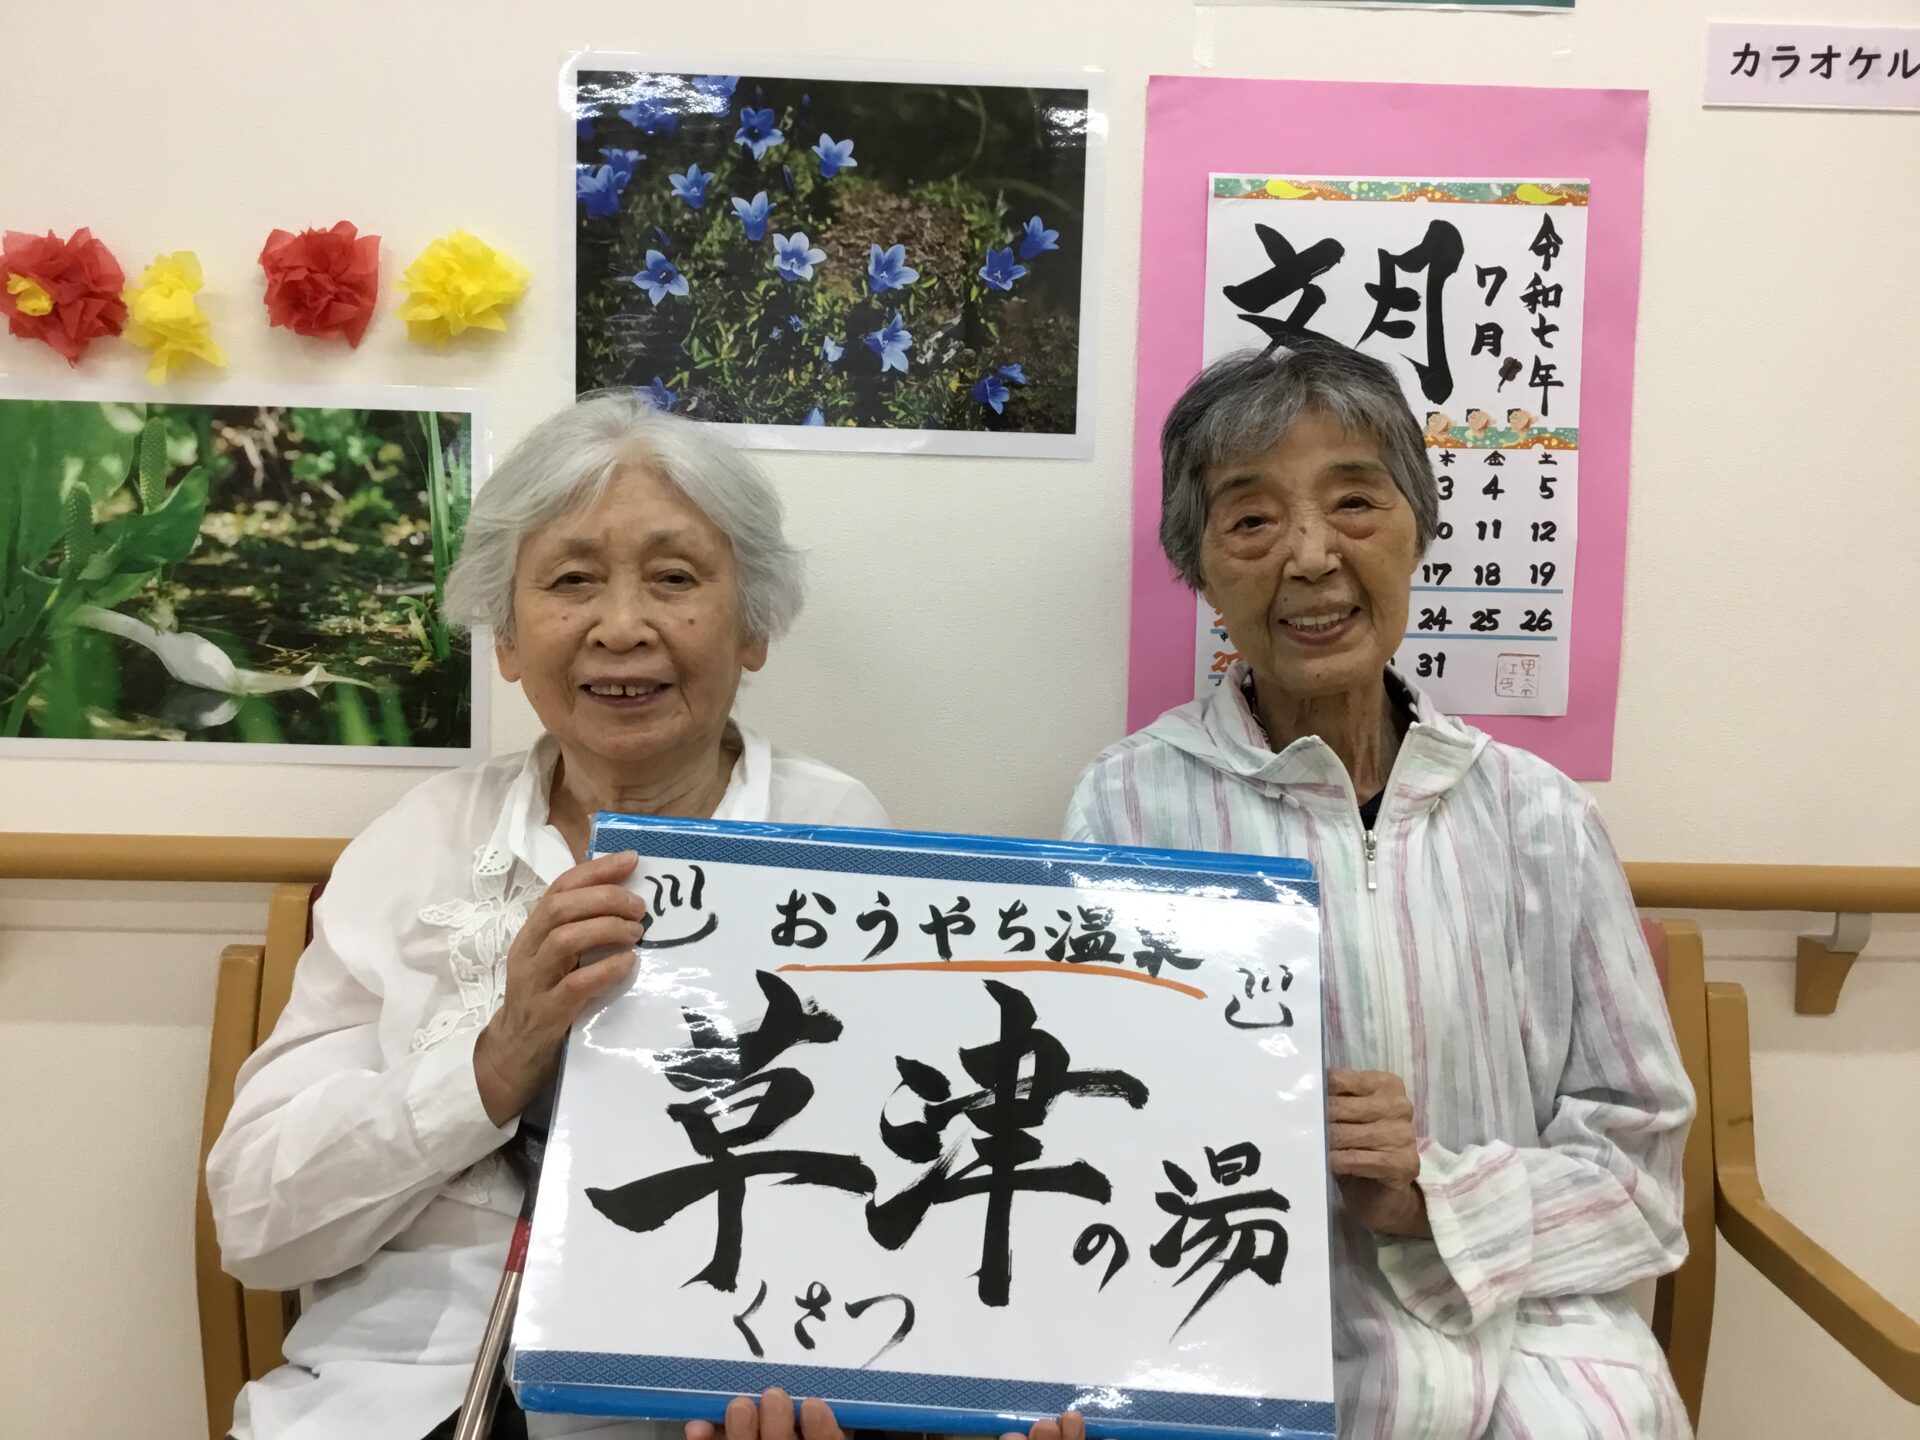 カラオケル
文月
7月
令和七年
木 金 土
3 4 5
10 11 12
17 18 19
24 25 26
27
31
おうやち温泉
草津の湯
くさつ